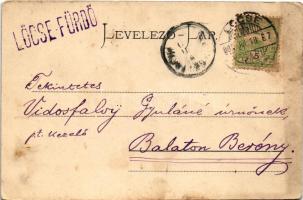 LŐCSE-FÜRDŐ
LEVELEZŐ-LAP.
LŐCSE
Tekintetes
Vidosfalvy Gyuláné úrnőnek,
Balaton Berény.